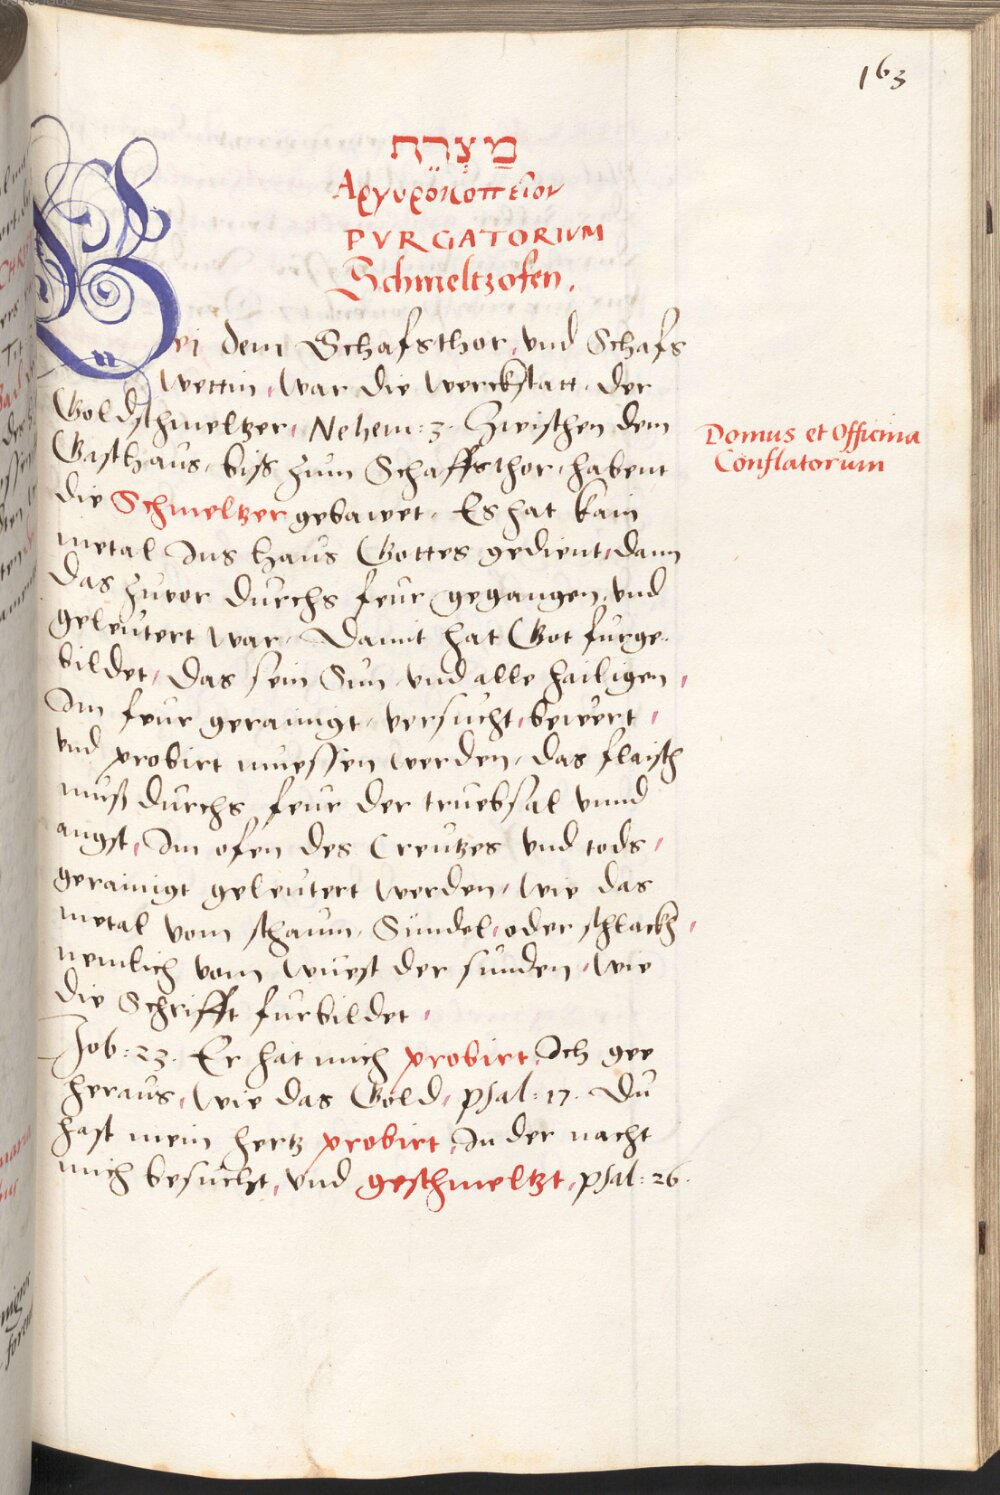 163
מַצְרֵח
Αργυροκοππεῖον
PVRGATORIVM
Schmeltzofen.
Bei dem Schafsthor, vnd Schafs
wettin, war die werckstatt der
Goldschmeltzer, Nehem: 3. Zwischen dem
Gasthaus, biß zum Schaffsthor, habent
die Schmeltzer gebawet. Es hat kain
metal Ins haus Gottes gedient, dann
das zuvor durchs feur gegangen, vnd
geleutert war, Damit hat Got furge-
bildet, das sein Sun, vnd alle hailigen,
Im feur gerainigt, versucht, bewert,
vnd probirt muessen werden, das flaisch
muß durchs feur der truebsal vnnd
angst, Im ofen des Creutzes vnd tods,
gerainigt geleutert werden, wie das
metal vom schaum, Sundel, oder schlackh,
nemlich vom wuest der sunden, wie
die Schrifft furbildet,
Job: 23. Er hat mich probirt, Ich gee
heraus, wie das Gold, psal: 17. Du
hast mein hertz probirt, In der nacht
mich besucht, vnd geschmeltzt, psal: 26.
Domus et Officina
Conflatorum